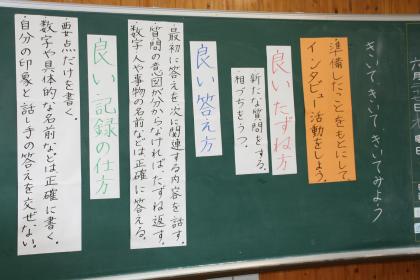 きいてきいてきいてみよう
準備したことをもとにして
インタビュー活動をしよう。
良いたずね方
新たな質問をする。
相づちをうつ。
良い答え方
最初に答えを次に関連する内容を話す。
質問の意図が分からなければたずね返す。
数字人や事物の名前などは正確に答える。
良い記録の仕方
要点だけを書く。
数字や具体的な名前などは正確に書く。
自分の印象と話し手の答えを交ぜない。